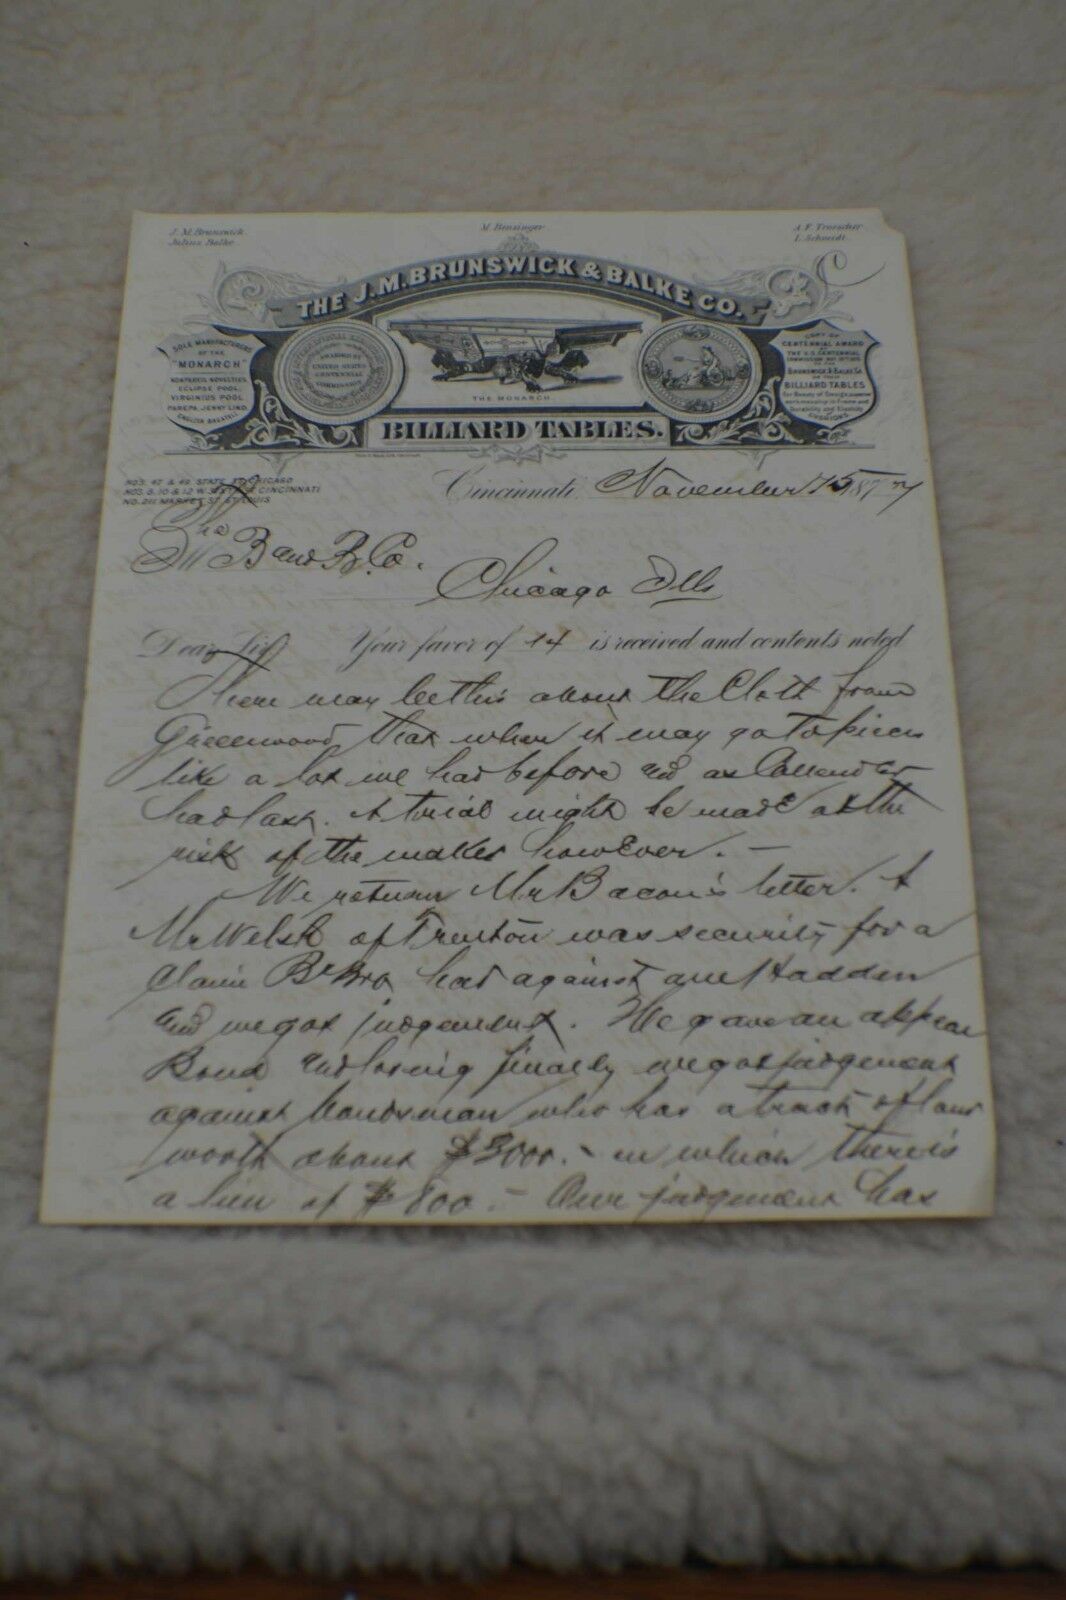 J. M. Brunswick
Julius Balke
M. Bensinger
A. F. Troescher
L. Schmidt
THE J. M. BRUNSWICK & BALKE CO.
SOLE MANUFACTURERS
OF THE
"MONARCH"
NONPAREIL NOVELTIES
ECLIPSE POOL
VIRGINIUS POOL
PAREPA, JENNY LIND
AWARDED BY
UNITED STATES
CENTENNIAL
COMMISSION
THE MONARCH
COPY OF
CENTENNIAL AWARD
THE U.S. CENTENNIAL
BRUNSWICK & BALKE Co.
BILLIARD TABLES
for Beauty of Design
workmanship in Frame and
Durability and Elasticity
CUSHIONS
BILLIARD TABLES.
NOS. 47 & 49 STATE ST CHICAGO
NOS 8, 10 & 12 W. CINCINNATI
NO. 211 MARKET ST ST LOUIS
Cincinnati, November 15 1877
The B and B. Co.
Chicago Ills
Dear Sir Your favor of 14 is received and contents noted
There may be this about the Cloth from
Greenwood that when it may go to pieces
like a lot we had before and as Callender
had last. A trial might be made at the
risk of the maker however. —
We return Mr Bacon's letter. A
Mr Welsh of Trenton was security for a
claim B & Bro had against one Hadden
and we got judgement. He gave an appeal
Bond and losing finally we got judgement
against bondsman who has a track of land
worth about $3000. – on which there is
a lien of $800. – Our judgement has